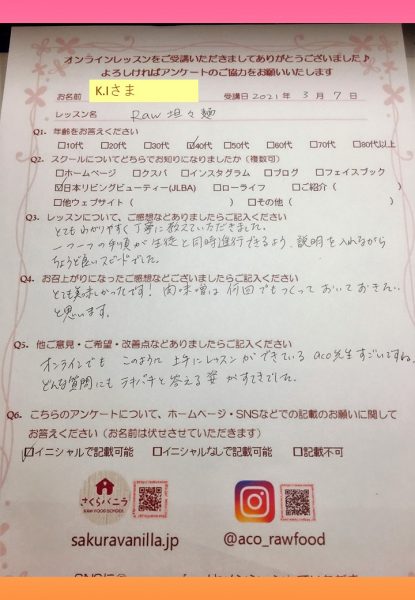 オンラインレッスンをご受講いただきましてありがとうございました♪
よろしければアンケートのご協力をお願いいたします
お名前 K.Iさま 受講日 2021年 3月 7日
レッスン名 Raw 坦々麺
Q1. 年齢をお答えください
□10代 □20代 □30代 ☑40代 □50代 □60代 □70代 □80代以上
Q2. スクールについてどちらでお知りになりましたか(複数可)
□ホームページ □クスパ □インスタグラム □ブログ □フェイスブック
☑日本リビングビューティー(JLBA) □ローライフ □ご紹介( )
□他ウェブサイト( ) □その他( )
Q3. レッスンについて、ご感想などありましたらご記入ください
とてもわかりやすく丁寧に教えていただきました。
一つ一つの手順が生徒と同時進行できるよう、説明を入れながら
ちょうど良いスピードでした。
Q4. お召上がりになったご感想などございましたらご記入ください
とても美味しかったです! 肉味噌は何回でもつくっておいておきたい
と思います。
Q5. 他ご意見・ご希望・改善点などありましたらご記入ください
オンラインでも このように上手にレッスンができている aco先生すごいですね。
どんな質問にもテキパキと答える姿がすてきでした。
Q6. こちらのアンケートについて、ホームページ・SNSなどでの記載のお願いに関して
お答えください(お名前は伏せさせていただきます)
☑イニシャルで記載可能 □イニシャルなしで記載可能 □記載不可
さくらバニラ
RAW FOOD SCHOOL
sakuravanilla.jp @aco_rawfood